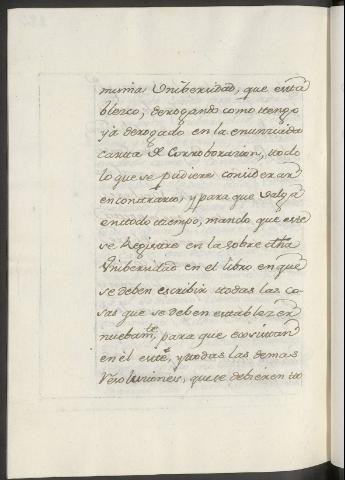 misma Vnibersidad, que esta
blesco, derogando como tengo
ya derogado en la enunciada
carta de Corroboracion, todo
lo que se pudiere considerar
en contrario, y para que valga
en todo tiempo, mando que este
se Registre en la sobre dha
Vnibersidad en el libro en que
se deben escribir todas las co-
sas que se deben establezer
nuebamte, para que exosiman
en el este, y todas las demas
Resoluciones, que se debieren to